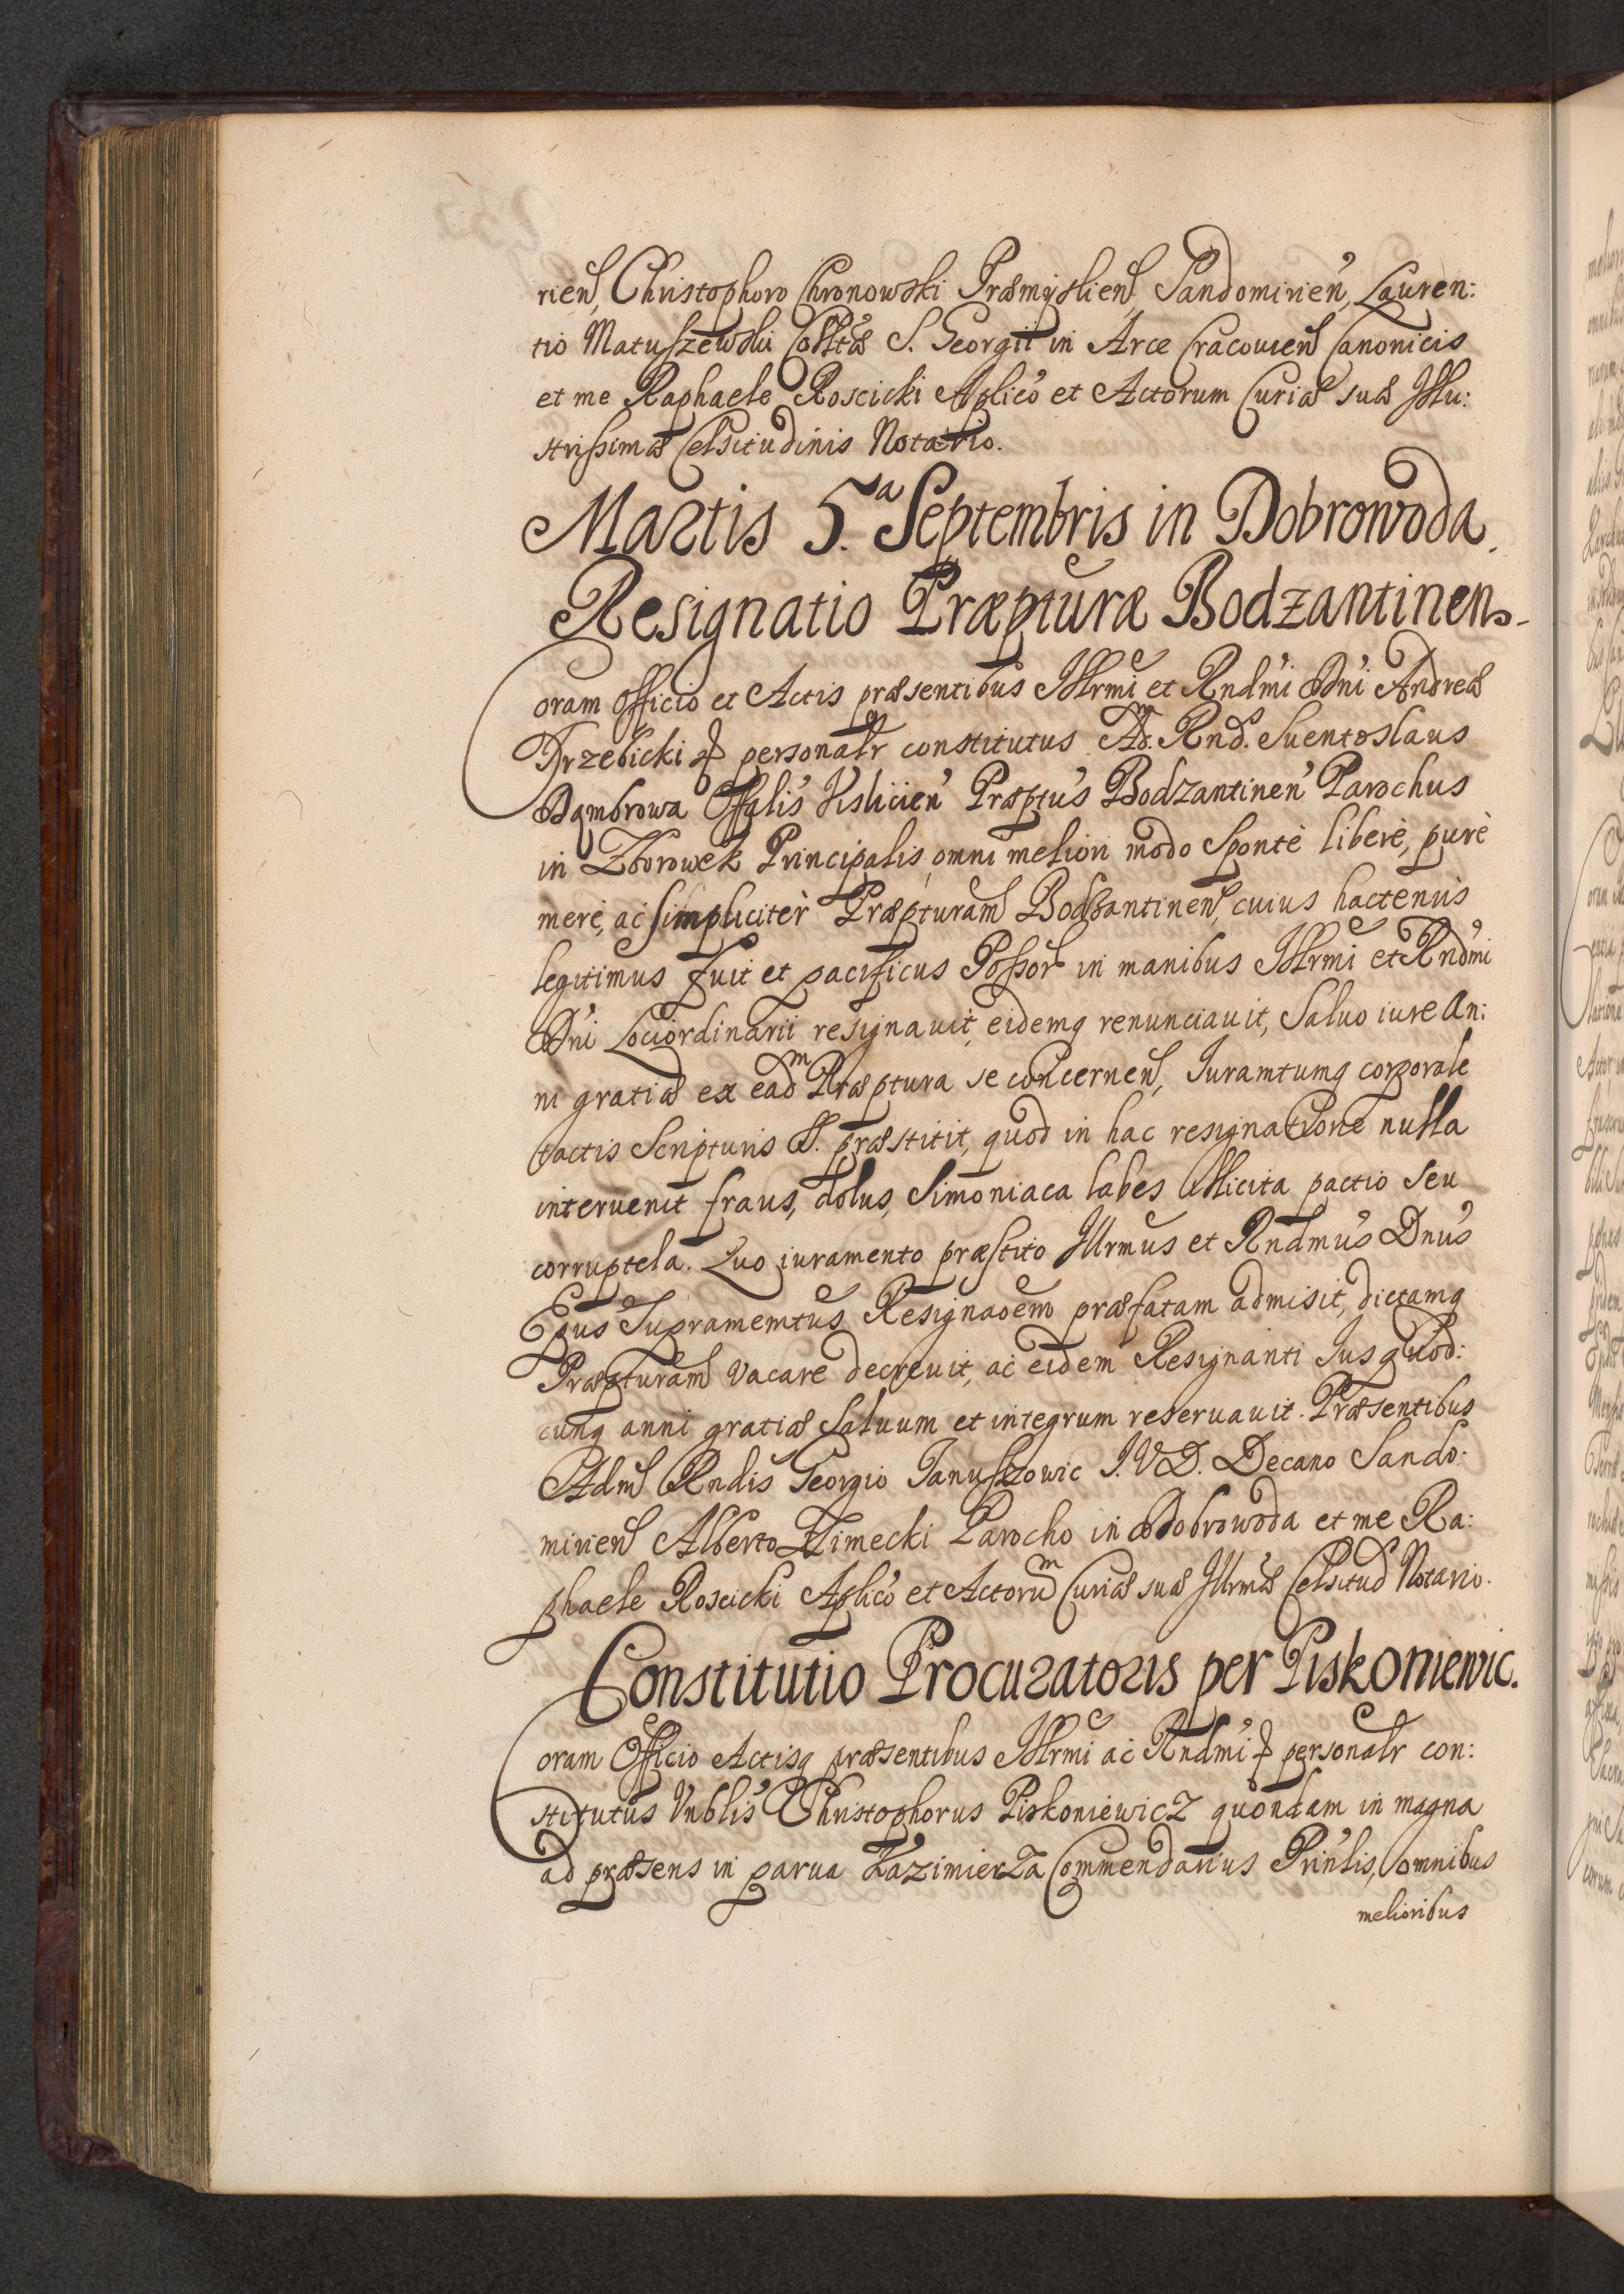 rien̄, Christophoro Chronowski Præmyslien̄, Sandomirien̄, Lauren:
tio Matuszewski Colltæ S. Georgii in Arce Cracouien̄ Canonicis
et me Raphaele Roscicki Aplico et Actorum Curiæ suæ Illu:
strissimæ Celsitudinis Notario.
Martis 5.ª Septembris in Dobrowoda.
Resignatio Præpturæ Bodzantinen.
Coram Officio et Actis præsentibus Illrmi et Rndmi Dni Andreæ
Trzebicki personalr constitutus Ad.m Rnd. Suentoslaus
Dambrowa Offalis Vislicien Præptus Bodzantinen Parochus
in Zborowek Principalis, omni meliori modo Sponte libere, pure
mere, ac simpliciter Præpturam Bodzantinen̄, cuius hactenus
legitimus fuit et pacificus Possor in manibus Illrmi et Rndmi
Dni Lociordinarii resignauit, eidemq renunciauit, Saluo iure an:
ni gratiæ ex eadm Præptura se concernen̄, Iuramtumq corporale
tactis Scripturis S. præstitit, quod in hac resignatione nulla
interuenit fraus, dolus, Simoniaca labes illicita pactio seu
corruptela. Quo iuramento præstito Illrmus et Rndmus Dnus
Epus Supramemtus Resignaoem præfatam admisit, dictamq
Præpturam vacare decreuit, ac eidem Resignanti Jus quod:
cunq anni gratiæ saluum et integrum reseruauit. Præsentibus
Adm Rndis Georgio Januszowic J.V.D. Decano Sando:
mirien̄ Alberto Zimecki Parocho in Dobrowoda et me Ra:
phaele Roscicki Aplico et Actorum Curiæ suæ Illrmæ Celsitud Notario.
Constitutio Procuratoris per Piskoniewic.
Coram Officio Actisq præsentibus Illrmi ac Rndmi personalr con:
stitutus Vnblis Christophorus Piskoniewicz quondam in magna
ad præsens in parua Kazimierza Commendarius Prinlis, omnibus
melioribus